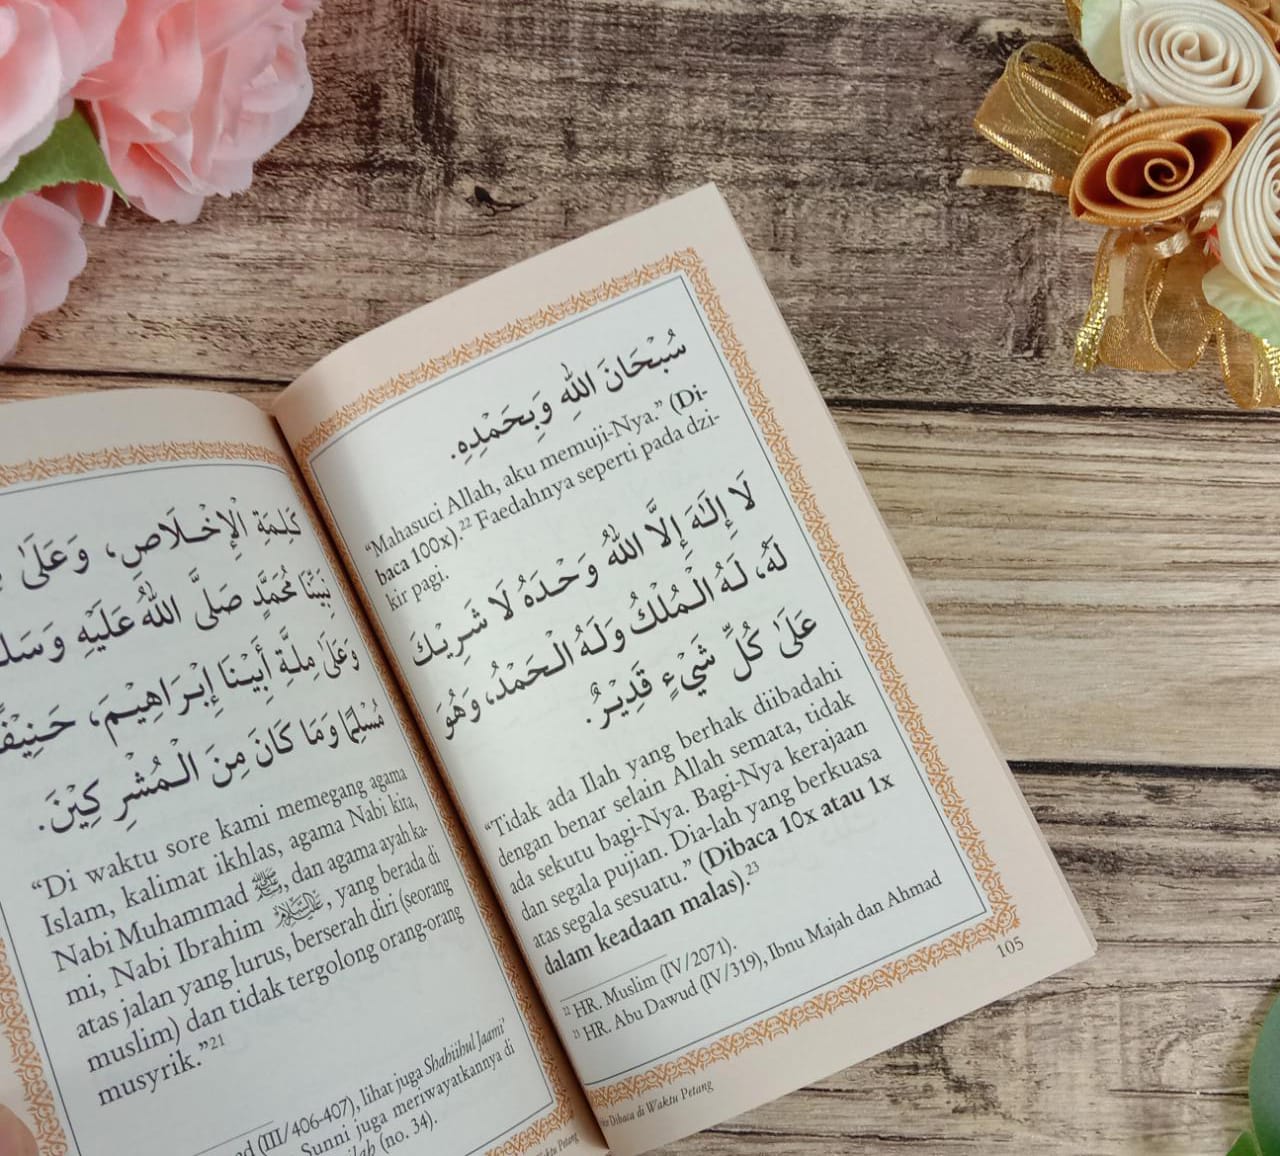 كَلِمَةِ الْإِخْلَاصِ، وَعَلَىٰ
نَبِيِّنَا مُحَمَّدٍ صَلَّى اللهُ عَلَيْهِ وَسَلَّـ
وَعَلَىٰ مِلَّةِ أَبِيْنَا إِبْرَاهِيْمَ، حَنِيْفًا
مُسْلِمًا وَمَا كَانَ مِنَ الْمُشْرِكِيْنَ.
“Di waktu sore kami memegang agama
Islam, kalimat ikhlas, agama Nabi kita,
Nabi Muhammad ﷺ, dan agama ayah ka-
mi, Nabi Ibrahim, yang berada di
atas jalan yang lurus, berserah diri (seorang
muslim) dan tidak tergolong orang-orang
musyrik.”21
(III/406-407), lihat juga Shahiihul Jaami’
Sunni juga meriwayatkannya di
(no. 34).
سُبْحَانَ اللهِ وَبِحَمْدِهِ.
“Mahasuci Allah, aku memuji-Nya.” (Di-
baca 100x).22 Faedahnya seperti pada dzi-
kir pagi.
لَا إِلَهَ إِلَّا اللهُ وَحْدَهُ لَا شَرِيْكَ
لَهُ، لَهُ الْمُلْكُ وَلَهُ الْحَمْدُ، وَهُوَ
عَلَىٰ كُلِّ شَيْءٍ قَدِيْرٌ.
“Tidak ada Ilah yang berhak diibadahi
dengan benar selain Allah semata, tidak
ada sekutu bagi-Nya. Bagi-Nya kerajaan
dan segala pujian. Dia-lah yang berkuasa
atas segala sesuatu.” (Dibaca 10x atau 1x
dalam keadaan malas).23
22 HR. Muslim (IV/2071).
23 HR. Abu Dawud (IV/319), Ibnu Majah dan Ahmad
Dibaca di Waktu Petang
105